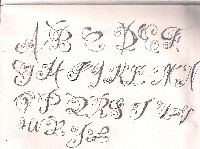 A B C D E F
G H I J K L M N
O P Q R S T U V
W X Y Z